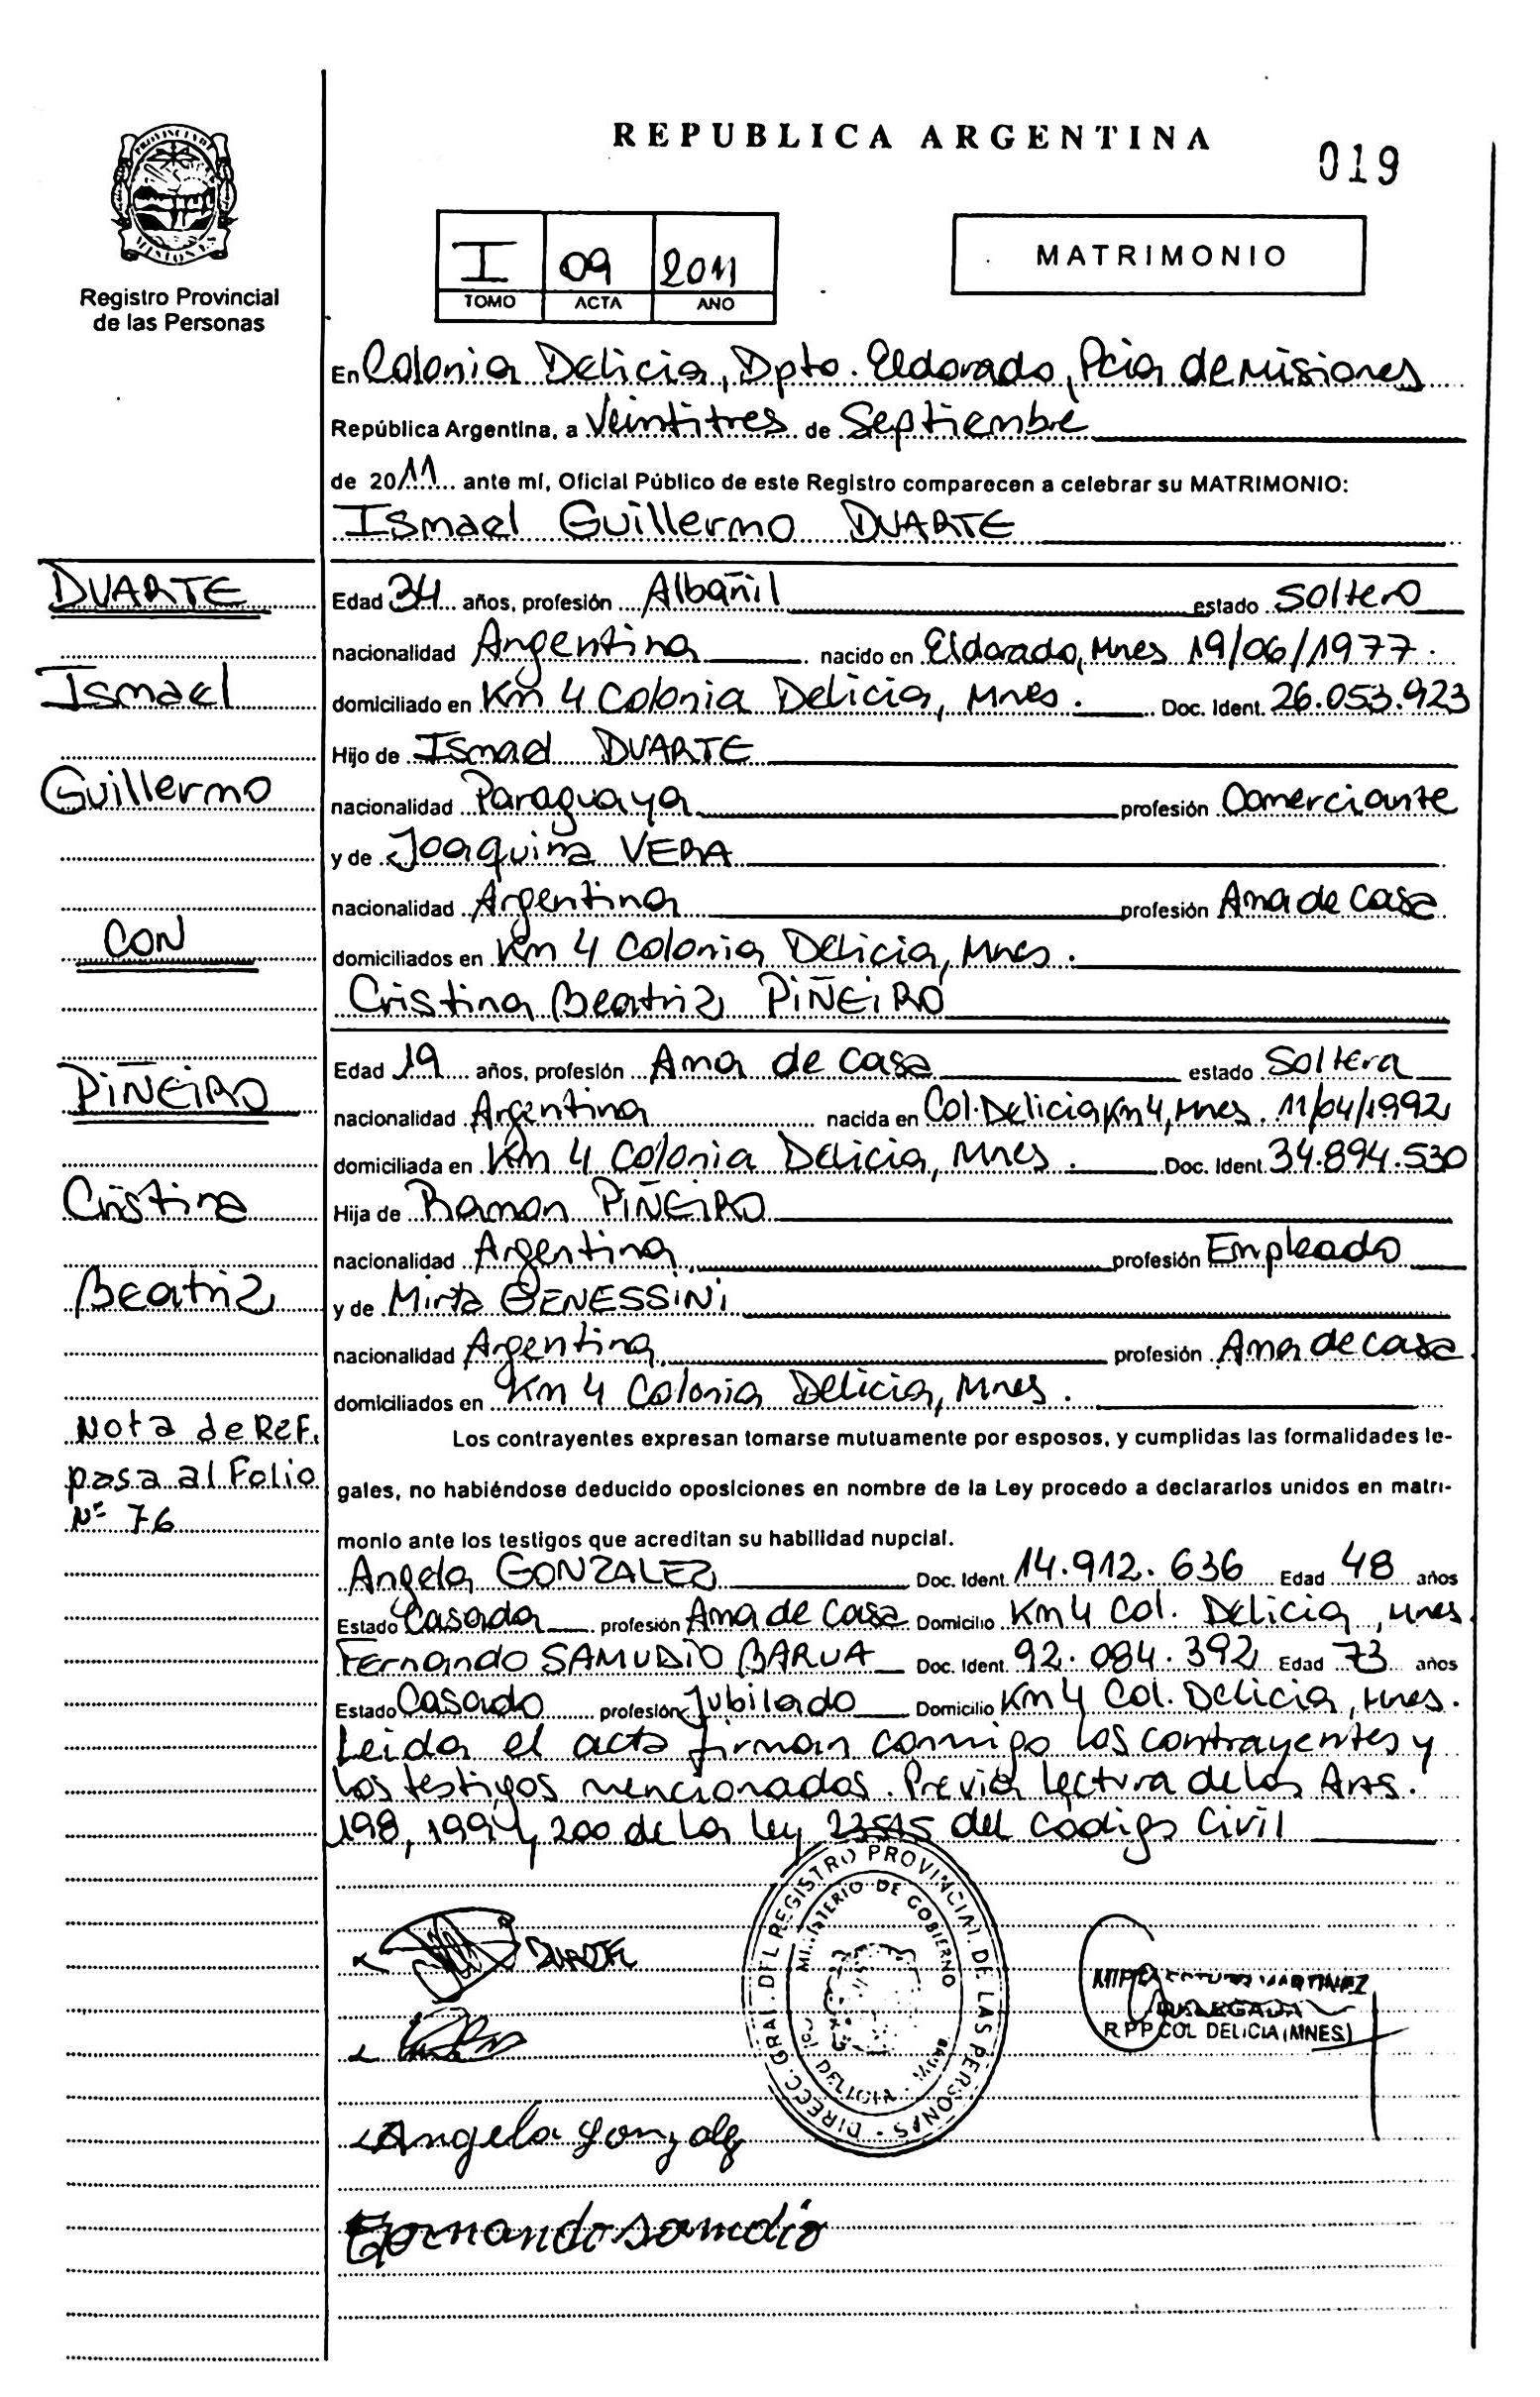 REPUBLICA ARGENTINA
019
PROVINCIA DE MISIONES
Registro Provincial
de las Personas
I 09 2011
TOMO ACTA ANO
MATRIMONIO
En Colonia Delicia, Dpto. Eldorado, Pcia de Misiones
República Argentina, a Veintitres de Septiembre
de 2011 ante mí, Oficial Público de este Registro comparecen a celebrar su MATRIMONIO:
Ismael Guillermo DUARTE
DUARTE
Ismael
Guillermo
CON
PIÑEIRO
Cristina
Beatriz
Nota de Ref.
pasa al Folio
Nº 76
Edad 34 años, profesión Albañil estado Soltero
nacionalidad Argentina nacido en Eldorado, Mnes 19/06/1977.
domiciliado en Km 4 Colonia Delicia, Mnes. Doc. Ident. 26.053.923
Hijo de Ismael DUARTE
nacionalidad Paraguaya profesión Comerciante
y de Joaquina VERA
nacionalidad Argentina profesión Ama de Casa
domiciliados en Km 4 Colonia Delicia, Mnes.
Cristina Beatriz PIÑEIRO
Edad 19 años, profesión Ama de casa estado Soltera
nacionalidad Argentina nacida en Col. Delicia Km 4, Mnes. 11/04/1992
domiciliada en Km 4 Colonia Delicia, Mnes. Doc. Ident. 34.894.530
Hija de Ramon PIÑEIRO
nacionalidad Argentina profesión Empleado
y de Mirta GENESSINI
nacionalidad Argentina profesión Ama de casa.
domiciliados en Km 4 Colonia Delicia, Mnes.
Los contrayentes expresan tomarse mutuamente por esposos, y cumplidas las formalidades le-
gales, no habiéndose deducido oposiciones en nombre de la Ley procedo a declararlos unidos en matri-
monio ante los testigos que acreditan su habilidad nupcial.
Angela GONZALEZ Doc. Ident. 14.912.636 Edad 48 años
Estado Casada profesión Ama de Casa Domicilio Km 4 Col. Delicia, Mnes.
Fernando SAMUDIO BARUA Doc. Ident. 92.084.392 Edad 73 años
Estado Casado profesión Jubilado Domicilio Km 4 Col. Delicia, Mnes.
Leida el acta firman conmigo los contrayentes y
los testigos mencionados. Previa lectura de los Arts.
198, 199 y 200 de la Ley 23515 del Codigo Civil
DUARTE
DIRECC. GRAL. DEL REGISTRO PROVINCIAL DE LAS PERSONAS
MINISTERIO DE GOBIERNO
COL DELICIA
MARTINEZ
DELEGADA
R.P.P. COL DELICIA (MNES)
Angela Gonzalez
Fernando samudio